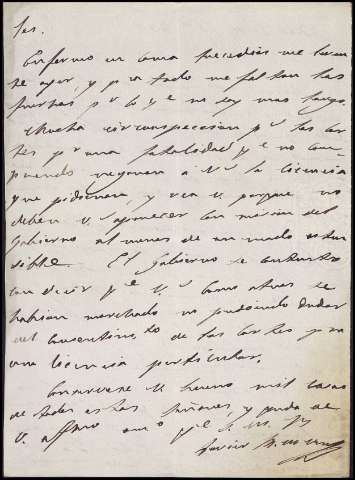 tes.
Enfermo en cama me levan
te ayer, y por tanto me faltan las
fuerzas p.ª lo q.e no soy mas largo.
Mucha circunspeccion p.ª las Cor
tes por una fatalidad q.e no com
prendo negaron a V.s la licencia
que pidieran, y vea V. porque no
deben V.s aparecer con mision del
Gobierno al menos de un modo osten
sible. El Gobierno se contento
con decir q.e V.s como otros se
habian marchado no pudiendo dudar
del consentim.to de las Cortes para
una licencia particular.
Conservese V. bueno mil cosas
de todos estos Señores, y mande a
V. affmo am.o q.e S. M. B.
Javier